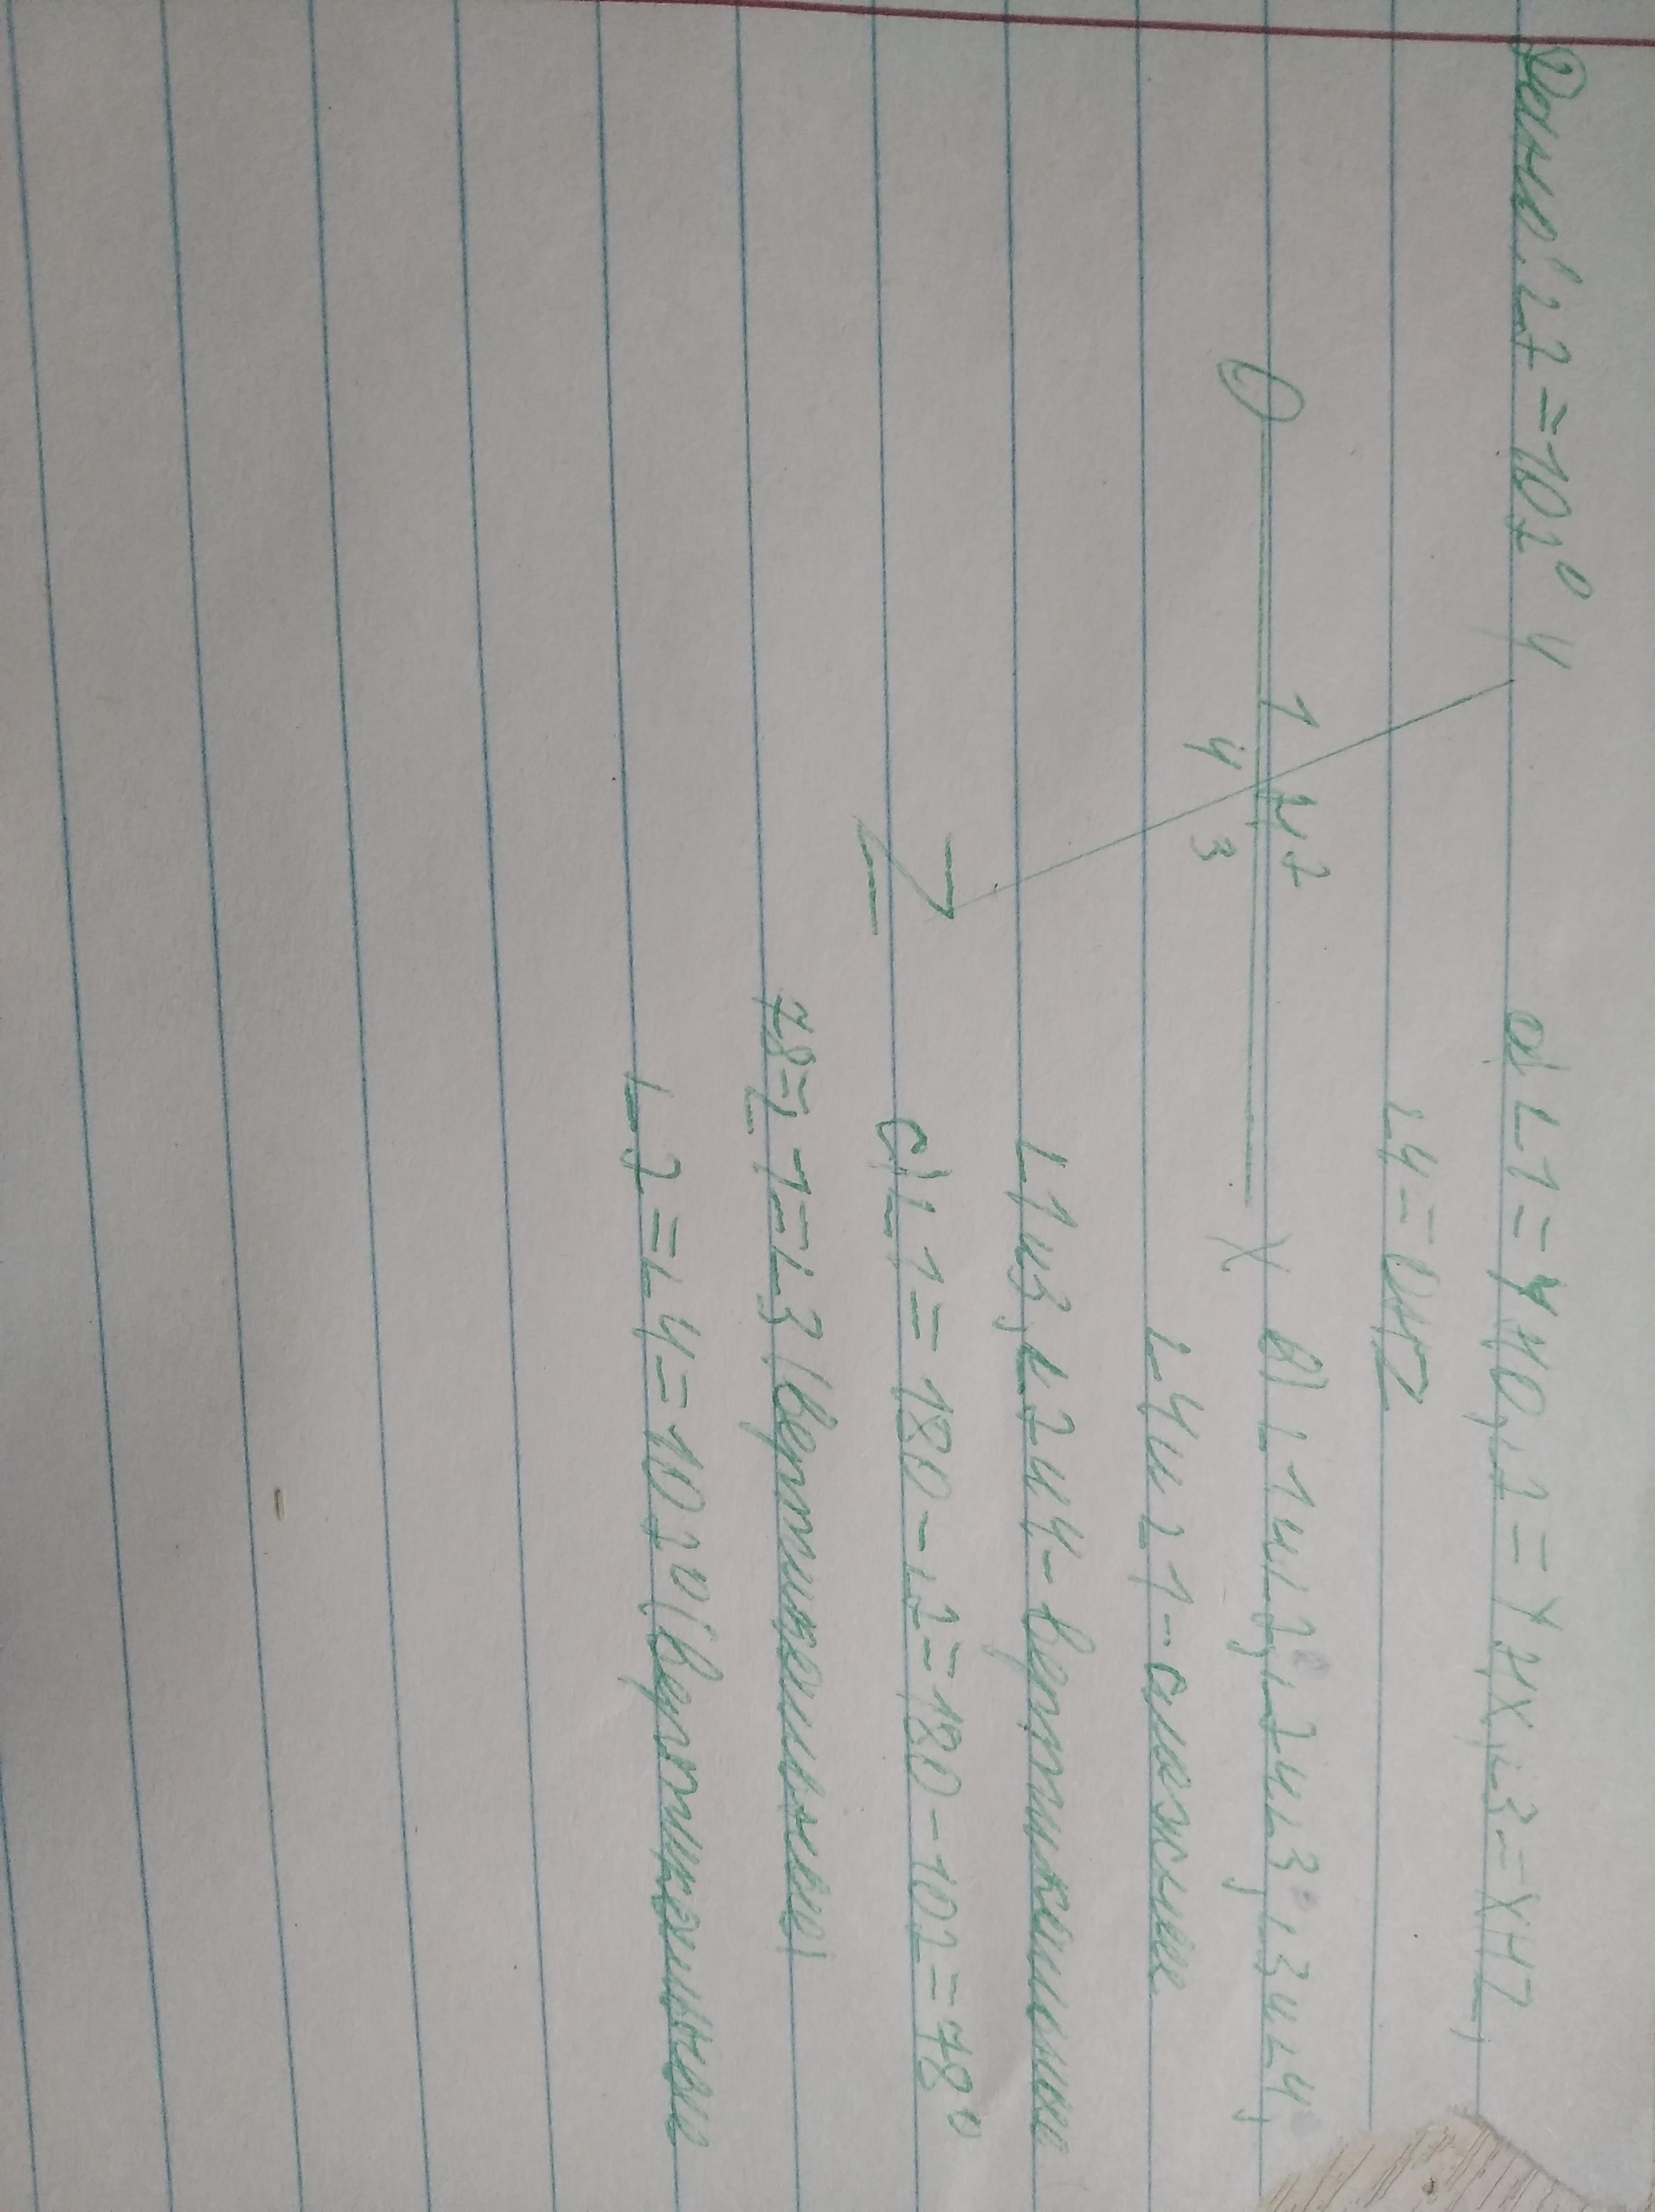 Дано: ∠2=102° y
a) ∠1=YHO, ∠2=YHX, ∠3=XHZ,
∠4=OHZ
O 1 2 H X
4 3
Z
в) ∠1 и ∠2, ∠2 и ∠3, ∠3 и ∠4,
∠4 и ∠1 - смежные
∠1 и 3, ∠2 и 4 - вертикальные
c) ∠1=180-∠2=180-102=78°
78=∠1=∠3 (вертикальные)
∠2=∠4=102° (вертикальные